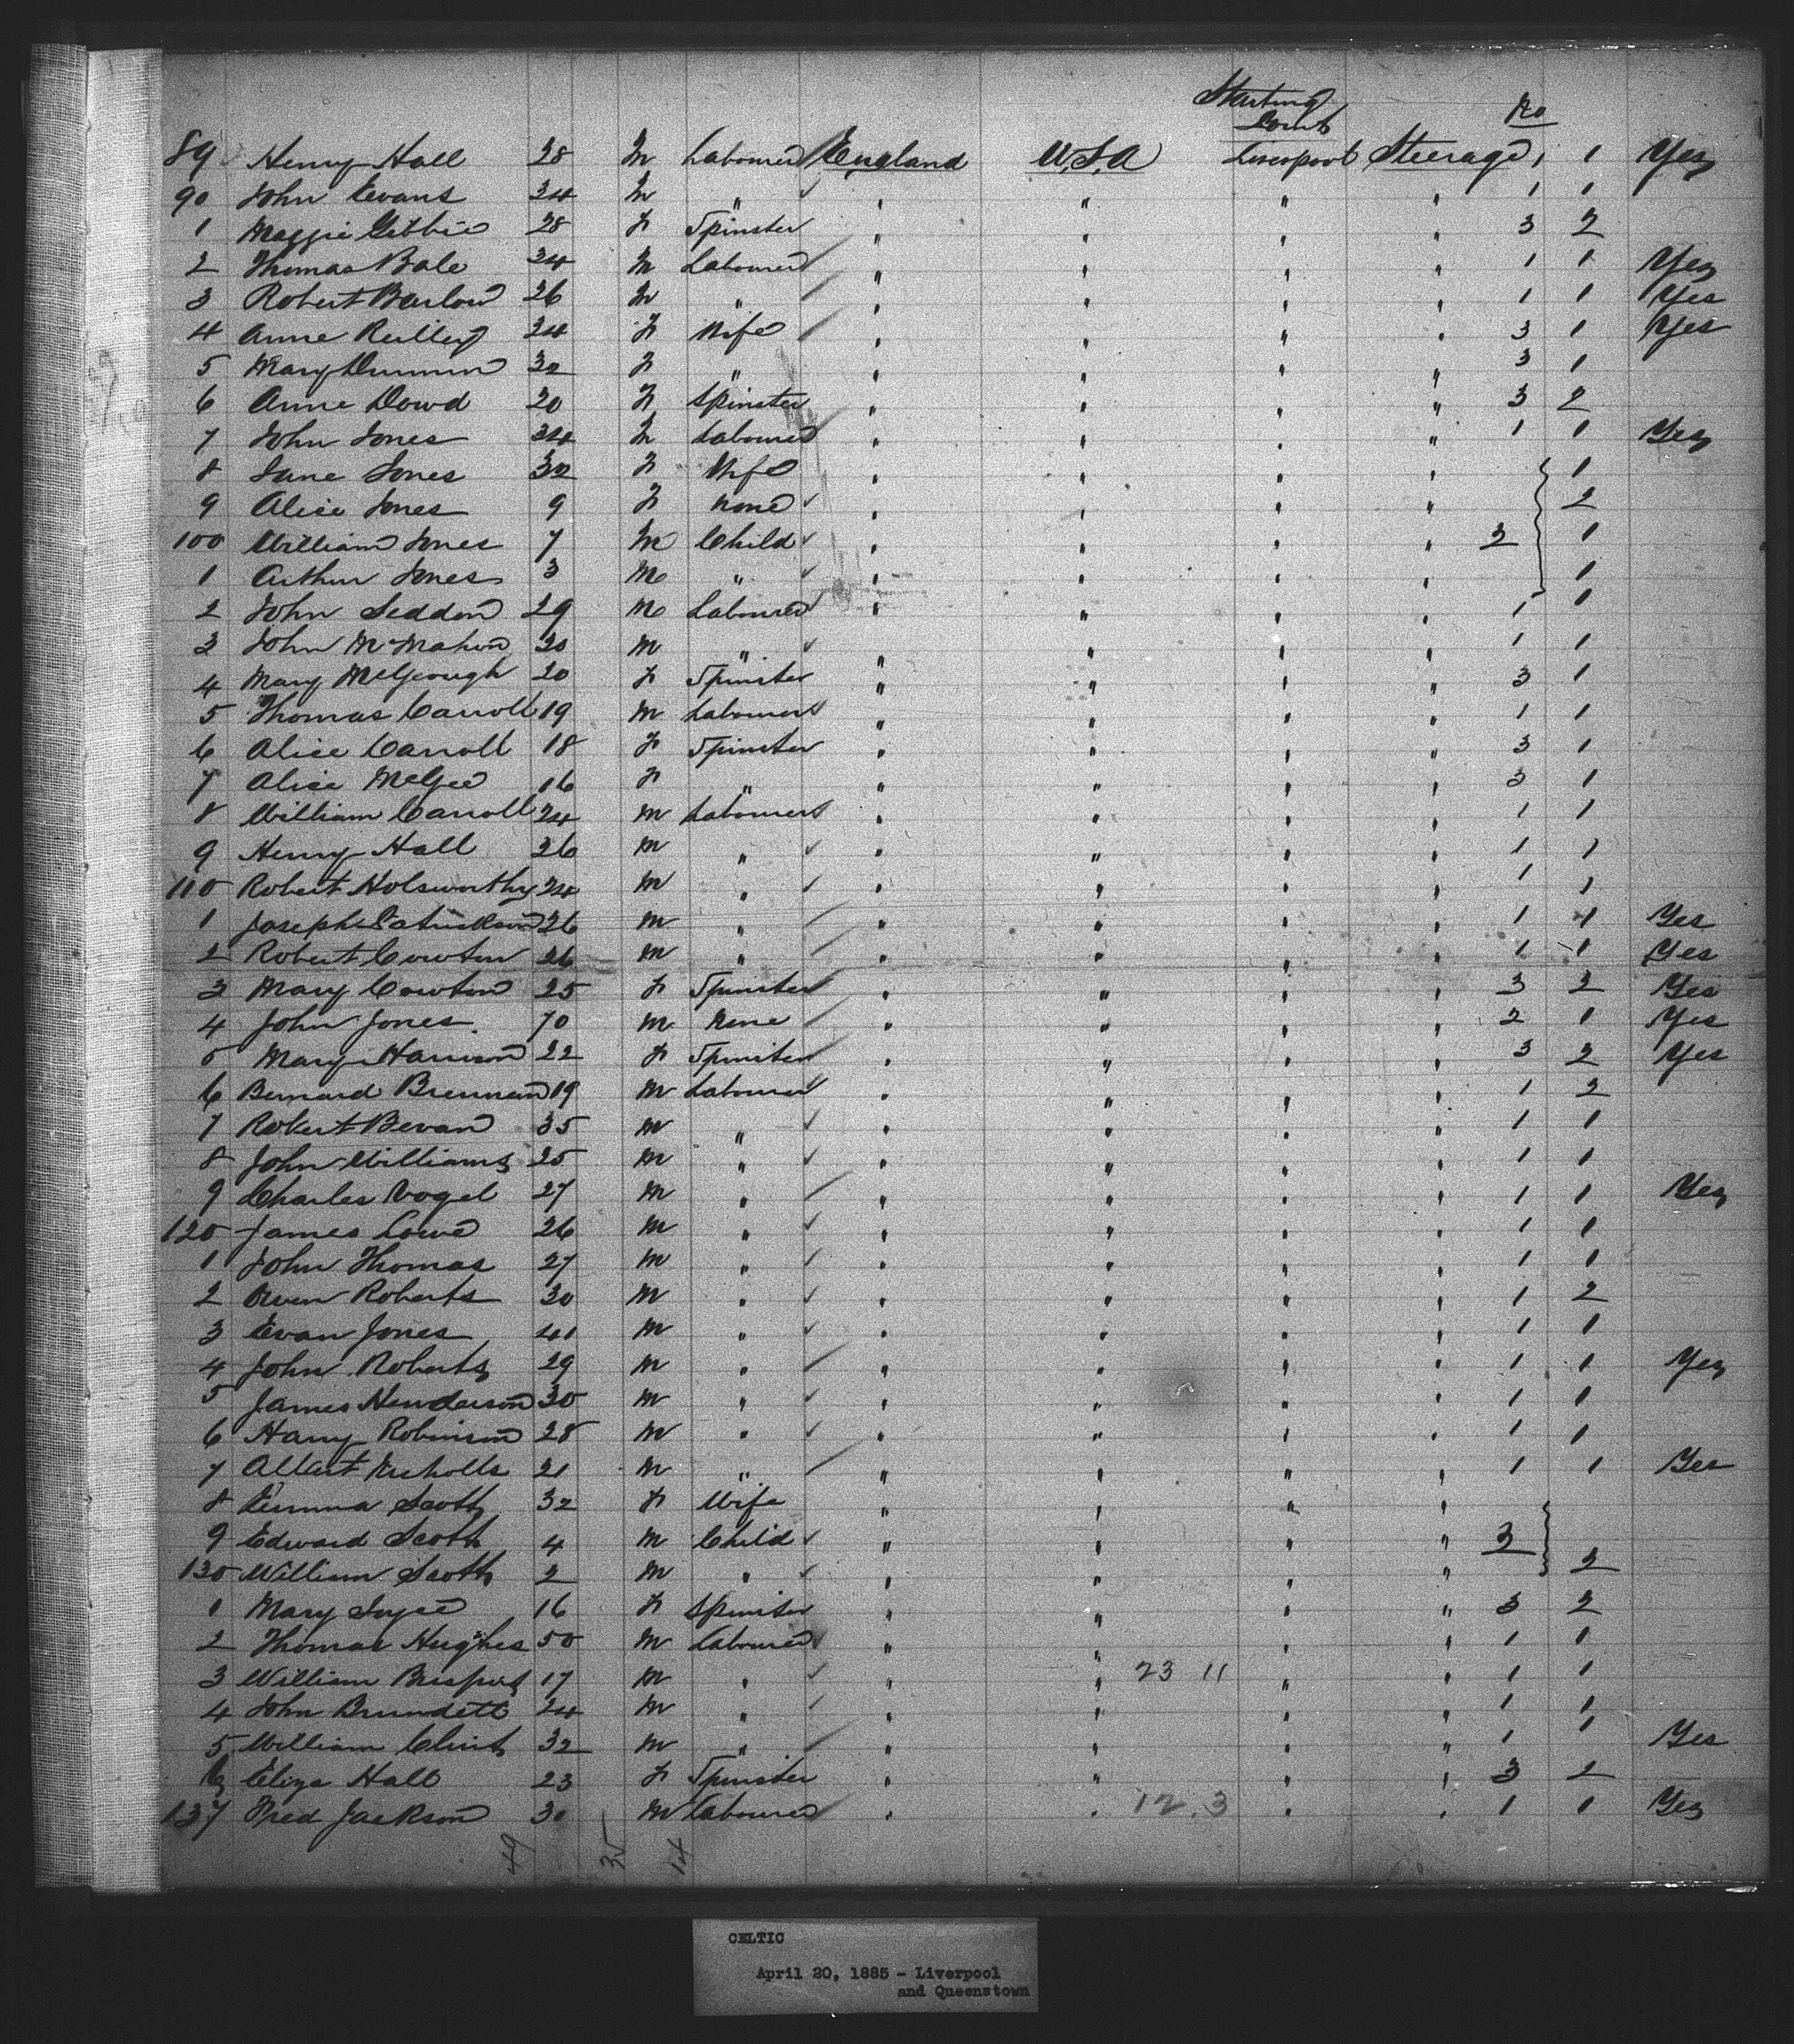 Starting Point No
89 Henry Hall 28 M Labourer England U.S.A Liverpool Steerage 1 1 Yes
90 John Evans 24 M " " " " " 1 1
1 Maggie Gibbie 28 F Spinster " " " " 3 2
2 Thomas Bale 34 M Labourer " " " " 1 1 Yes
3 Robert Barlow 26 M " " " " " 1 1 Yes
4 Anne Reilley 34 F Wife " " " " 3 1 Yes
5 Mary 32 F " " " " " 3 1
6 Anne Dowd 20 F Spinster " " " " 3 2
7 John Jones 34 M Labourer " " " " 1 1 Yes
8 Jane Jones 32 F Wife " " " " 1
9 Alice Jones 9 F None " " " " 2
100 William Jones 7 M Child " " " " 2 1
1 Arthur Jones 3 M " " " " " 1
2 John Seddon 29 M Labourer " " " " 1 1
3 John McMahon 20 M " " " " " 1 1
4 Mary McGeough 20 F Spinster " " " " 3 1
5 Thomas Carroll 19 M Labourer " " " " 1 1
6 Alice Carroll 18 F Spinster " " " " 3 1
7 Alice McGee 16 F " " " " " 3 1
8 William Carroll 24 M Labourer " " " " 1 1
9 Henry Hall 26 M " " " " " 1 1
110 Robert Holsworthy 24 M " " " " " 1 1
1 Joseph Patrickson 26 M " " " " " 1 1 Yes
2 Robert Cowton 26 M " " " " " 1 1 Yes
3 Mary Cowton 25 F Spinster " " " " 3 2 Yes
4 John Jones 70 M None " " " " 2 1 Yes
5 Mary Harrison 22 F Spinster " " " " 3 2 Yes
6 Bernard Brennan 19 M Labourer " " " " 1 2
7 Robert Bevan 35 M " " " " " 1 1
8 John Williams 25 M " " " " " 1 1
9 Charles Vogel 27 M " " " " " 1 1 Yes
120 James Lowe 26 M " " " " " 1 1
1 John Thomas 27 M " " " " " 1 1
2 Owen Roberts 30 M " " " " " 1 2
3 Evan Jones 41 M " " " " " 1 1
4 John Roberts 29 M " " " " " 1 1 Yes
5 James Henderson 30 M " " " " " 1 1
6 Harry Robinson 28 M " " " " " 1 1
7 Albert Nicholls 21 M " " " " " 1 1 Yes
8 Emma Scott 32 F Wife " " " "
9 Edward Scott 4 M Child " " " " 3
130 William Scott 2 M " " " " " 2
1 Mary Joyce 16 F Spinster " " " " 3 2
2 Thomas Hughes 50 M Labourer " " " " 1 1
3 William 17 M " " " 23 11 " " 1 1
4 John Brundett 24 M " " " " " 1 1
5 William Clint 32 M " " " " " 1 1 Yes
6 Eliza Hall 23 F Spinster " " " " 3 2
137 Fred Jackson 30 M Labourer " " 12.3 " " 1 1 Yes
49 35 14
CELTIC
April 20, 1885 - Liverpool
and Queenstown